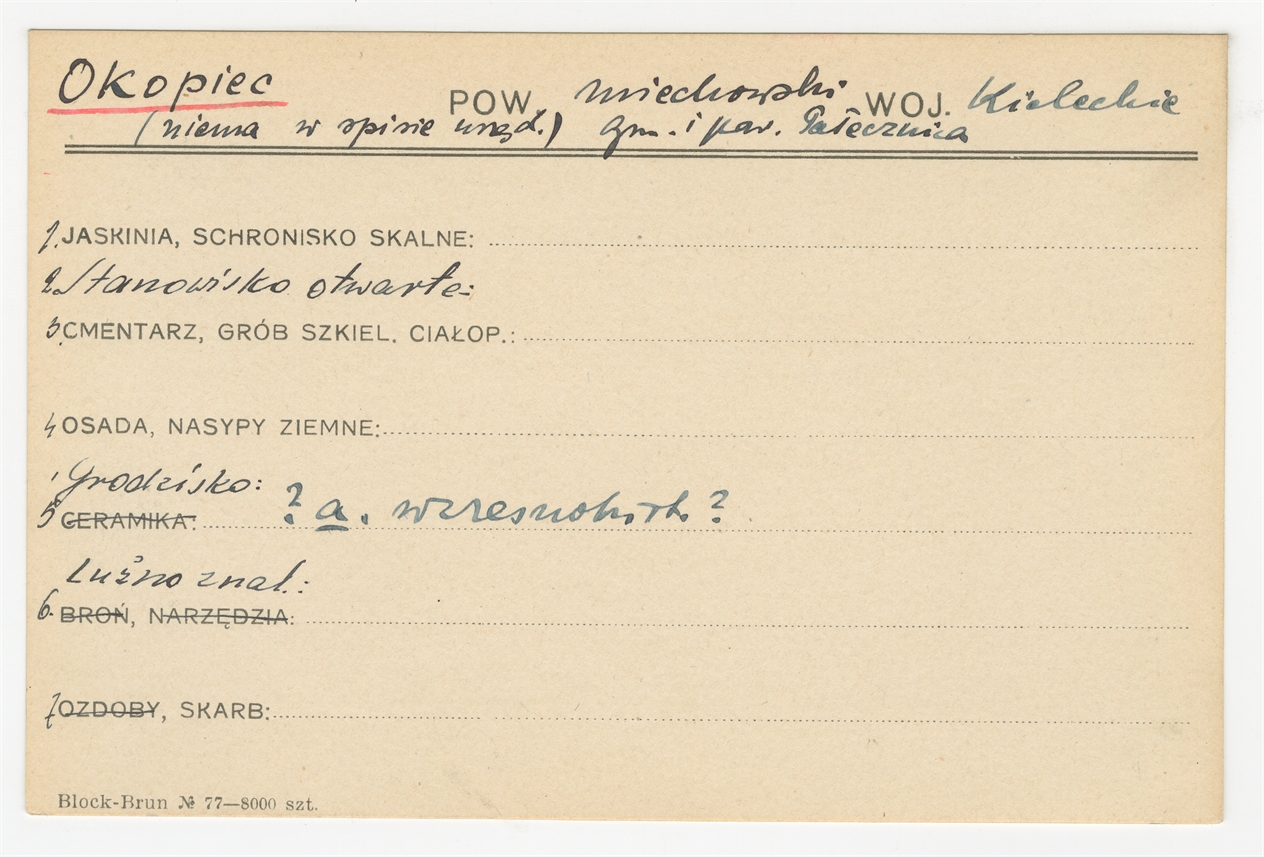 Okopiec POW. miechowski WOJ. Kieleckie
(niema w spisie urzęd.) gm. i par. Pałecznica
1. JASKINIA, SCHRONISKO SKALNE:
2. Stanowisko otwarte:
3. CMENTARZ, GRÓB SZKIEL. CIAŁOP.:
4 OSADA, NASYPY ZIEMNE:
Grodzisko:
5 CERAMIKA: ? a. wczesnohist. ?
Luźno znal.:
6. BROŃ, NARZĘDZIA:
7 OZDOBY, SKARB:
Block-Brun № 77—8000 szt.